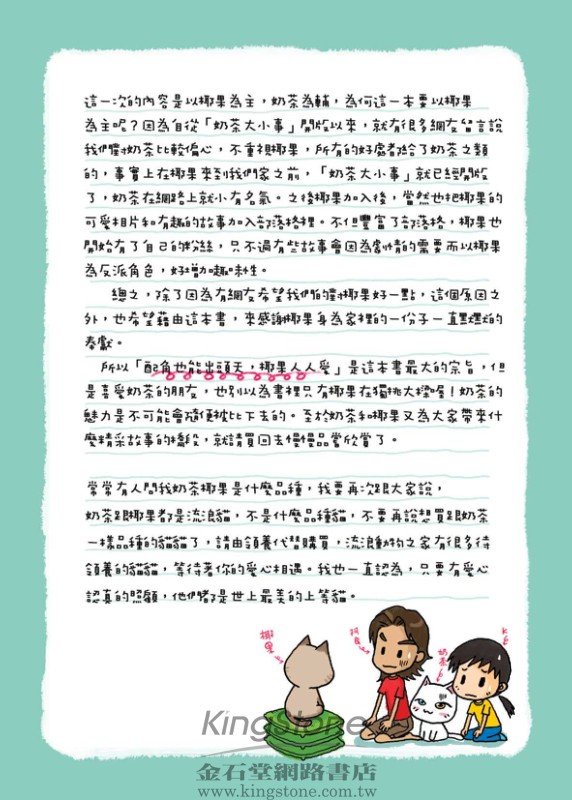 這一次的內容是以椰果為主，奶茶為輔，為何這一本要以椰果
為主呢？因為自從「奶茶大小事」開版以來，就有很多網友留言說
我們對奶茶比較偏心，不重視椰果，所有的好處都給了奶茶之類
的，事實上在椰果來到我們家之前，「奶茶大小事」就已經開版
了，奶茶在網路上就小有名氣。之後椰果加入後，當然也把椰果的
可愛相片和有趣的故事加入部落格裡。不但豐富了部落格，椰果也
開始有了自己的粉絲，只不過有些故事會因為劇情的需要而以椰果
為反派角色，好增加趣味性。
總之，除了因為有網友希望我們對椰果好一點，這個原因之
外，也希望藉由這本書，來感謝椰果身為家裡的一份子一直以來的
奉獻。
所以「配角也能出頭天，椰果人人愛」是這本書最大的宗旨，但
是喜愛奶茶的朋友，也別以為書裡只有椰果在獨挑大樑喔！奶茶的
魅力是不可能會隨便被比下去的。至於奶茶和椰果又為大家帶來什
麼精采故事的橋段，就請買回去慢慢品嘗欣賞了。
常常有人問我奶茶椰果是什麼品種，我要再次跟大家說，
奶茶跟椰果都是流浪貓，不是什麼品種貓，不要再說想買跟奶茶
一樣品種的貓貓了，請由領養代替購買，流浪動物之家有很多待
領養的貓貓，等待著你的愛心相遇。我也一直認為，只要有愛心
認真的照顧，他們都是世上最美的上等貓。
椰果
阿良
奶茶
KingStone
金石堂網路書店
www.kingstone.com.tw